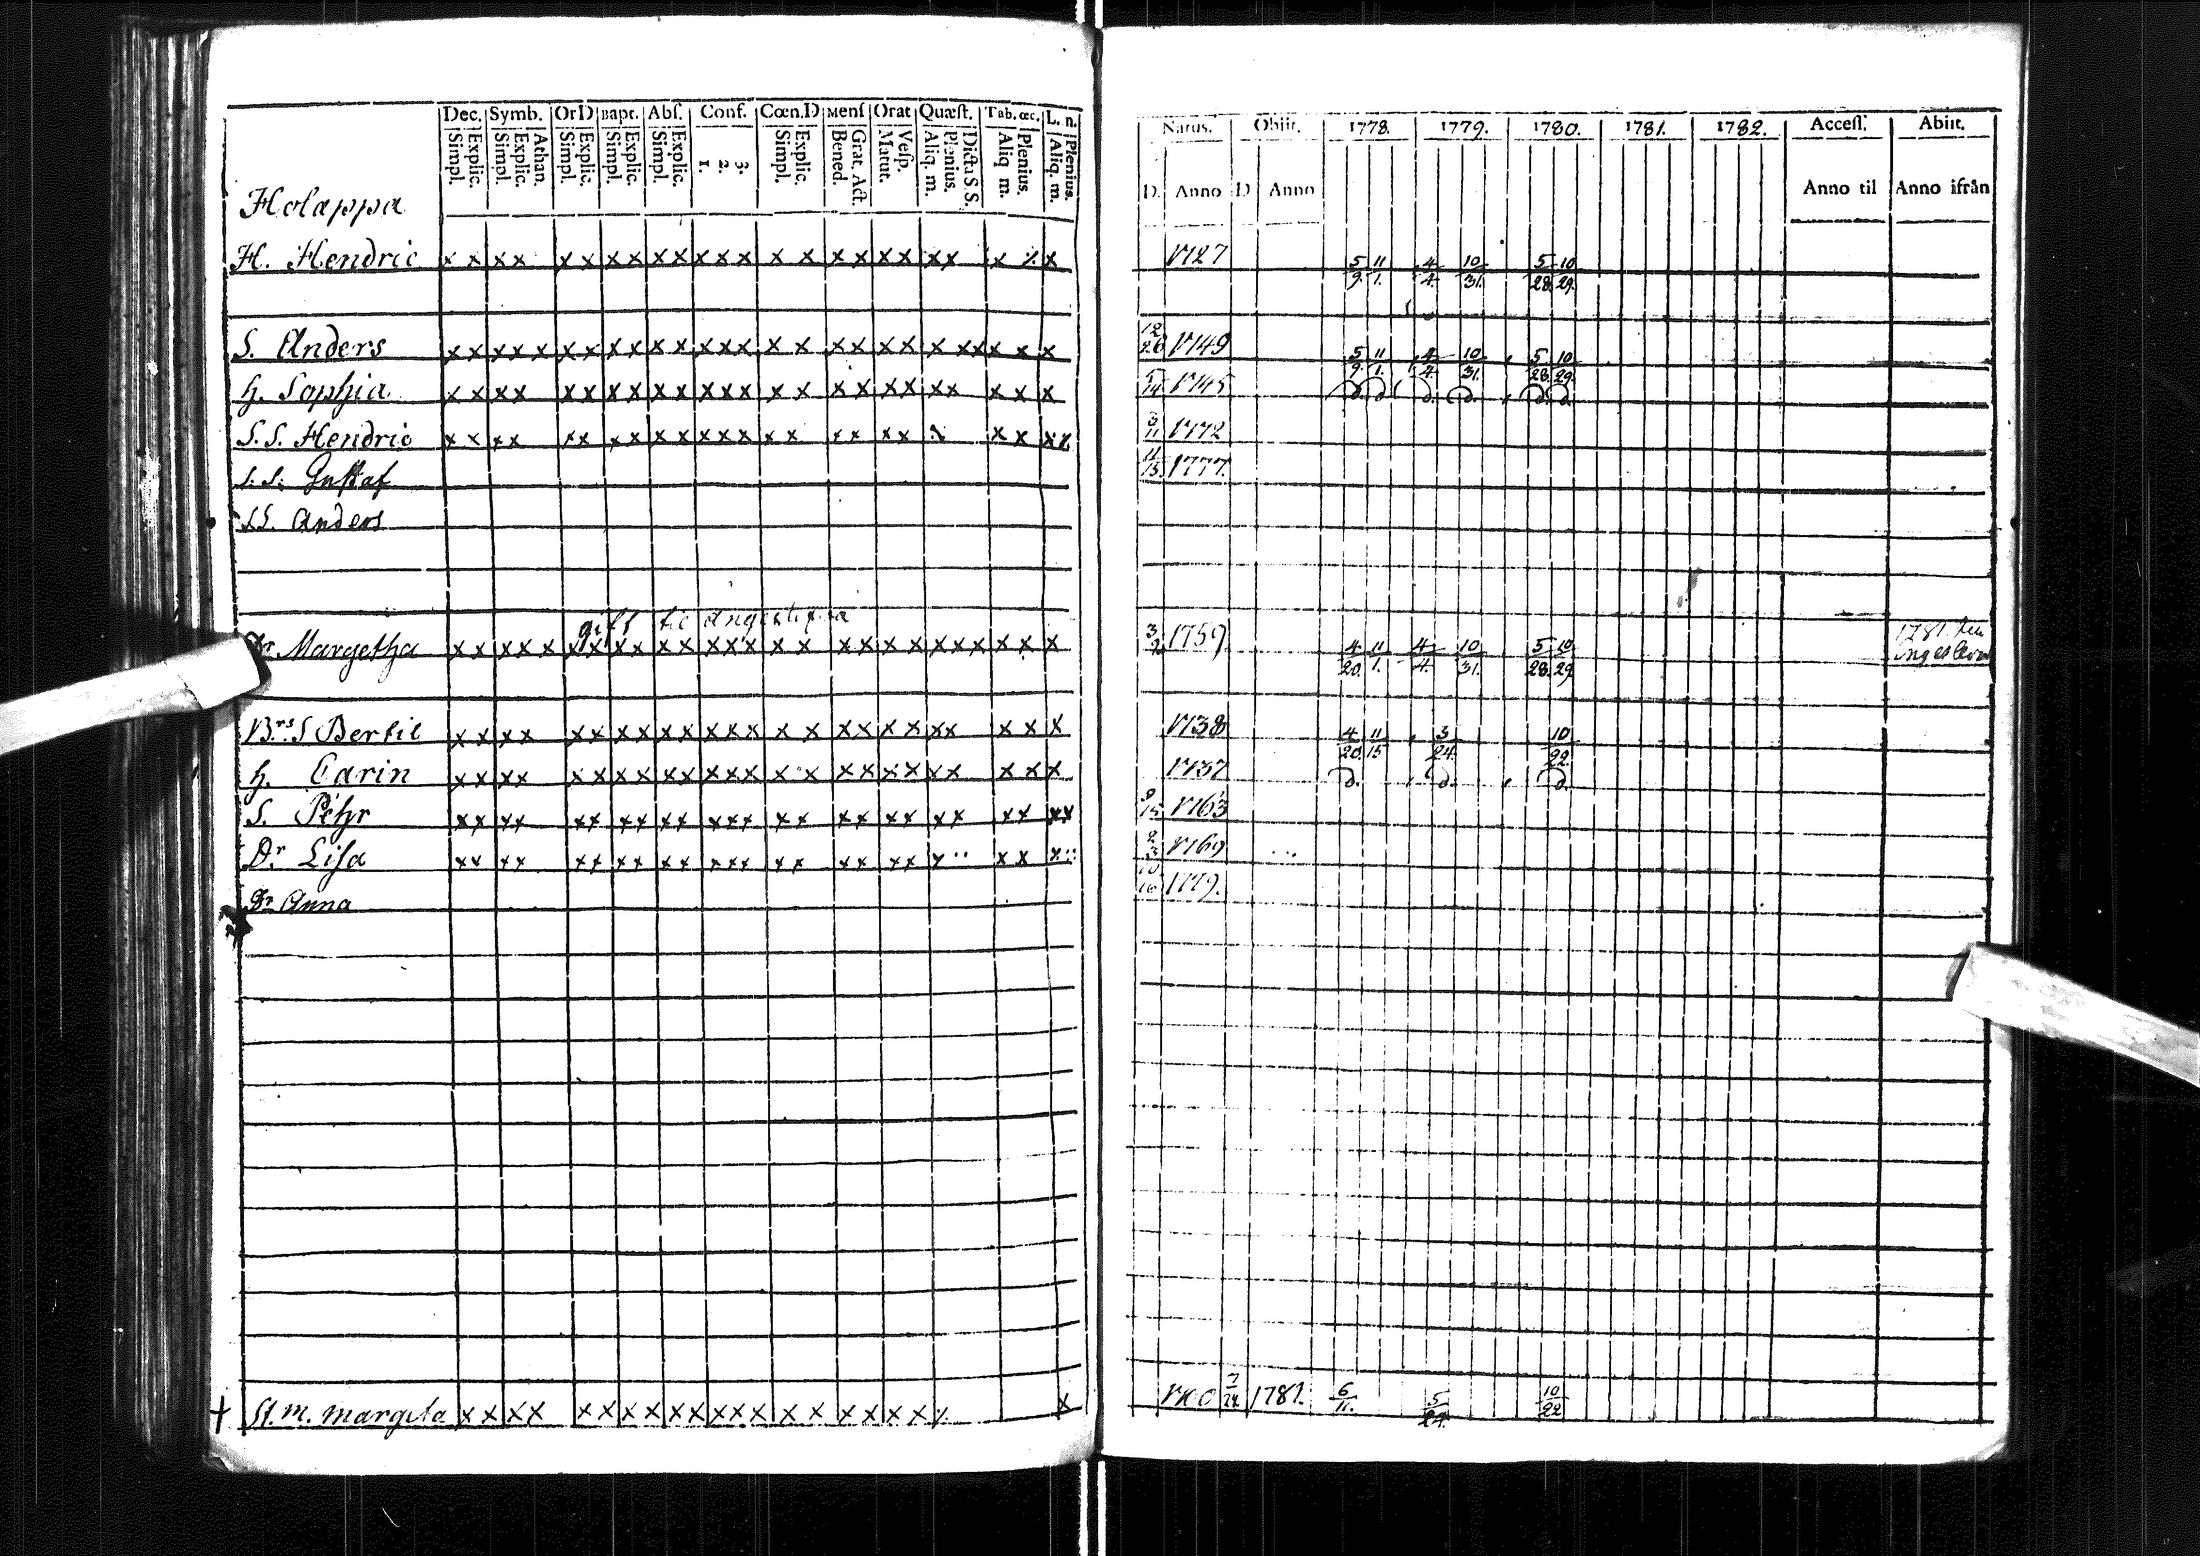 Dec. Symb. Or D Bapt. Abs. Conf. Cœn. D Mens Orat Quæst. Tab. œc. L. n.
Simpl. Explic. Simpl. Explic. Athan. Simpl. Explic. Simpl. Explic. Simpl. Explic. 1. 2. 3. Simpl. Explic. Bened. Grat. Act. Matut. Vesp. Aliq. m. Plenius. Dicta S. S. Aliq m. Plenius. Aliq. m. Plenius.
Holappa
H. Hendric x x x x x x x x x x x x x x x x x x x x x x x x
S. Anders x x x x x x x x x x x x x x x x x x x x x x x x x x
h. Sophia x x x x x x x x x x x x x x x x x x x x x x x x
S. S. Hendric x x x x x x x x x x x x x x x x x x x x x x x
S. S. Gustaf
S S. Anders
gift til
Dr. Margetha x x x x x x x x x x x x x x x x x x x x x x x x x x
Brs S Bertil x x x x x x x x x x x x x x x x x x x x x x x x
h. Carin x x x x x x x x x x x x x x x x x x x x x x x x
S. Pehr x x x x x x x x x x x x x x x x x x x x x x x x x
Dr Lisa x x x x x x x x x x x x x x x x x x x x x x x
Dr Anna
† St. m. margeta x x x x x x x x x x x x x x x x x x x x
Natus. Obiit. 1778. 1779. 1780. 1781. 1782. Access. Abiit.
D. Anno D Anno Anno til Anno ifrån
1727 5/9 11/1. 4/4. 10/31. 5/28. 10/29.
12/26 1749 5/9 11/1. 4/4. 10/31. 5/28. 10/29.
1745 d. d. d. d. d. d.
3/11 1772
11/13. 1777.
3/9 1759. 4/20. 11/1. 4/4. 10/31. 5/28. 10/29. 1781. til
1738 4/20 11/15 3/24. 10/22.
1737 d. d. d.
9/15 1763
2/3 1769
10/16 1779.
1700 7/24 1781. 6/11. 5/24. 10/22